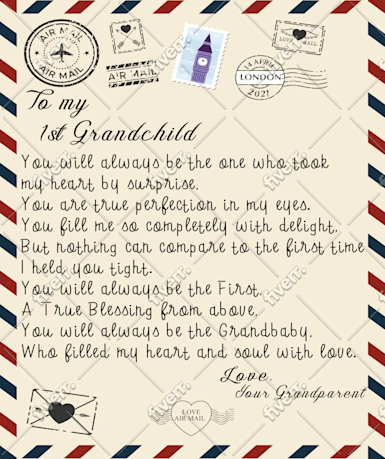 AIR MAIL
AIR MAIL
AIR MAIL
LOVE MAIL
14 APRIL
LONDON
2021
To my
1st Grandchild
You will always be the one who took
my heart by surprise.
You are true perfection in my eyes.
You fill me so completely with delight.
But nothing can compare to the first time
I held you tight.
You will always be the First.
A True Blessing from above.
You will always be the Grandbaby.
Who filled my heart and soul with love.
Love,
Your Grandparent
LOVE
AIR MAIL
fiverr.